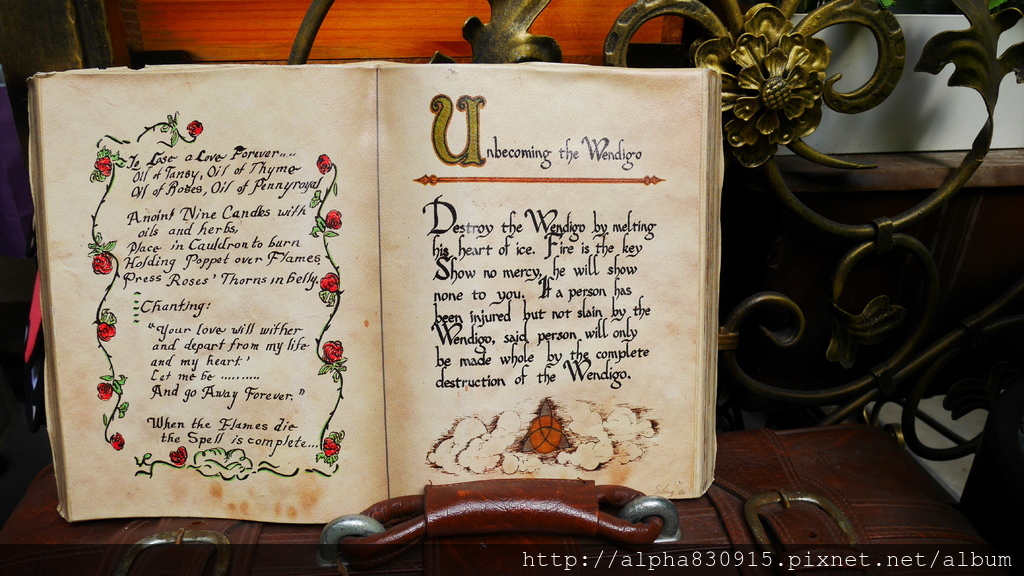 To Lose a Love Forever....
Oil of Tansy, Oil of Thyme
Oil of Roses, Oil of Pennyroyal
Anoint Nine Candles with
oils and herbs,
Place in Cauldron to burn
Holding Poppet over Flames,
Press Roses' Thorns in belly.
Chanting:
"Your love will wither
and depart from my life
and my heart'
Let me be ..........
And go Away Forever."
When the Flames die
the Spell is complete...
Unbecoming the Wendigo
Destroy the Wendigo by melting
his heart of ice. Fire is the key
Show no mercy, he will show
none to you. If a person has
been injured but not slain by the
Wendigo, said person will only
be made whole by the complete
destruction of the Wendigo.
http://alpha830915.pixnet.net/album